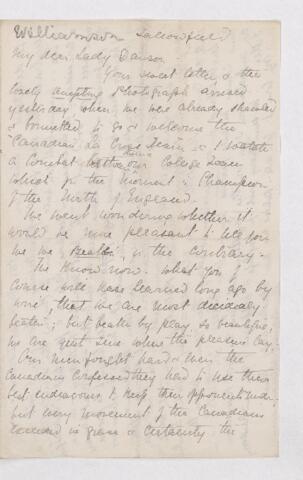 Williamson Sallowfield
My dear Lady Dawson.
Your sweet letter & the
lovely photograph arrived
yesterday when we were already shawled
& bonnetted to go & welcome the
Canadian La Cross Team, & to watch
a Combat our College team
which for the moment is Champion
of the North of England.
We went wondering whether it
would be more pleasant to tell you
we were beaten, or the contrary.
We know now. What you of
course will have learned long ago by
wire, that we are most decidedly
beaten; but beaten by play so beautiful,
we are quite sure where the pleasure lay.
Our men fought hard & even the
Canadians confessed they had to use their
best endeavours to keep their opponents under
but every movement of the Canadians
in grace & certainty the